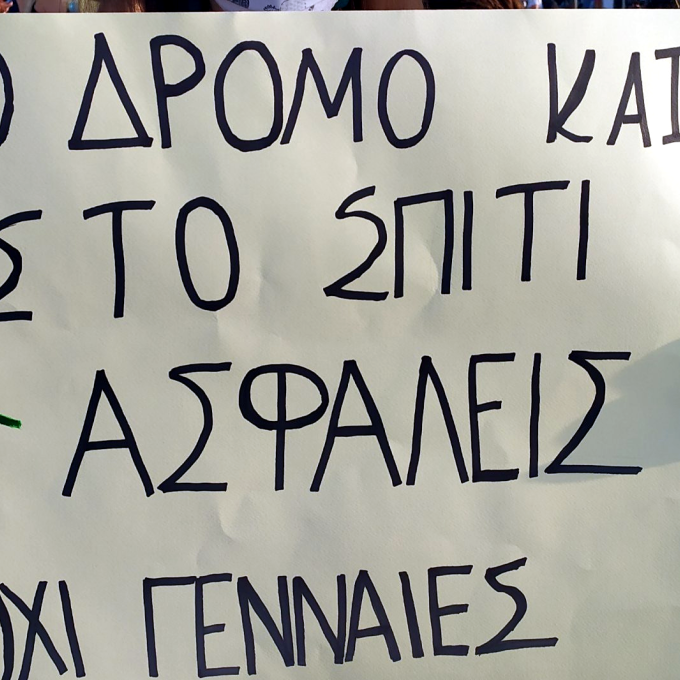 Ο ΔΡΟΜΟ ΚΑΙ
ΣΤΟ ΣΠΙΤΙ
ΑΣΦΑΛΕΙΣ
ΟΧΙ ΓΕΝΝΑΙΕΣ